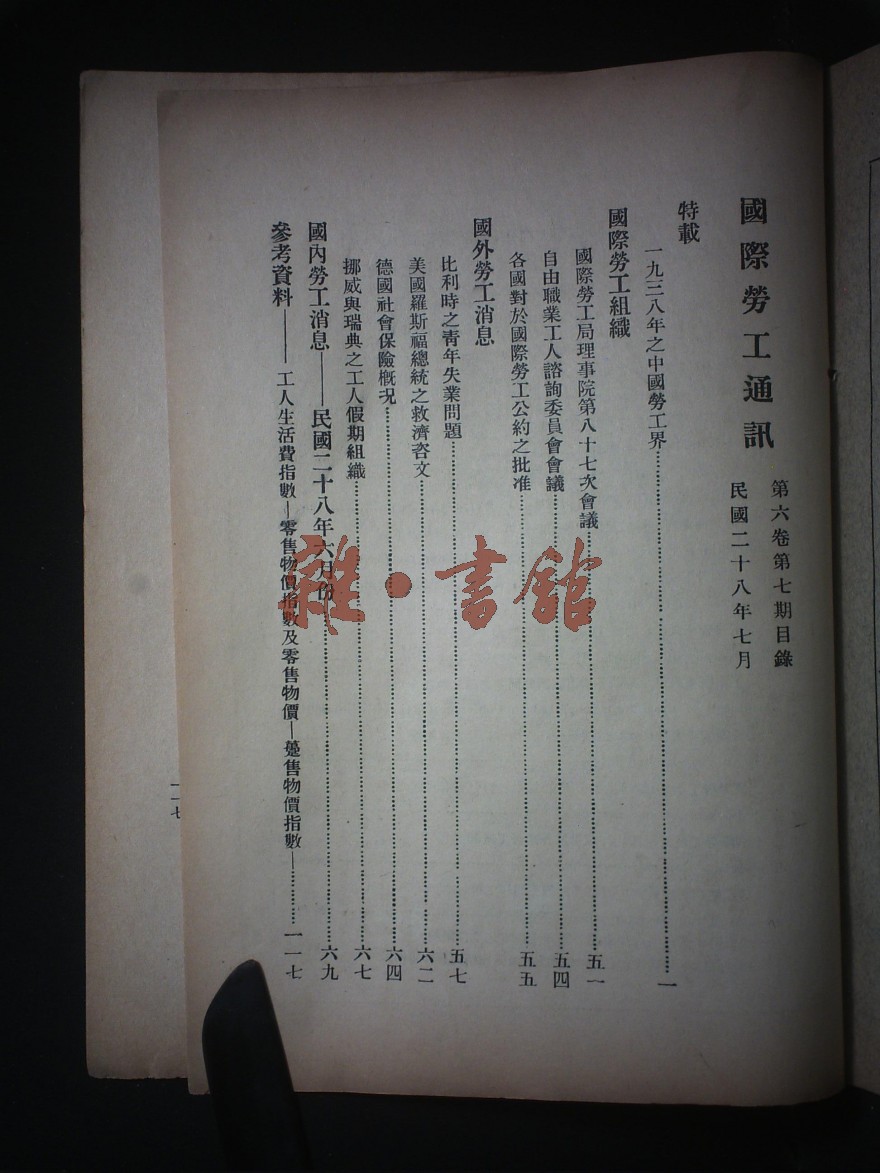 國際勞工通訊
第六卷第七期目錄
民國二十八年七月
特載
一九三八年之中國勞工界……一
國際勞工組織
國際勞工局理事院第八十七次會議……五一
自由職業工人諮詢委員會會議……五四
各國對於國際勞工公約之批准……五五
國外勞工消息
比利時之青年失業問題……五七
美國羅斯福總統之救濟咨文……六二
德國社會保險概況……六四
挪威與瑞典之工人假期組織……六七
國內勞工消息——民國二十八年六月份……六九
參考資料——工人生活費指數—零售物價指數及零售物價—躉售物價指數—……一一七
一一七
雜·書館